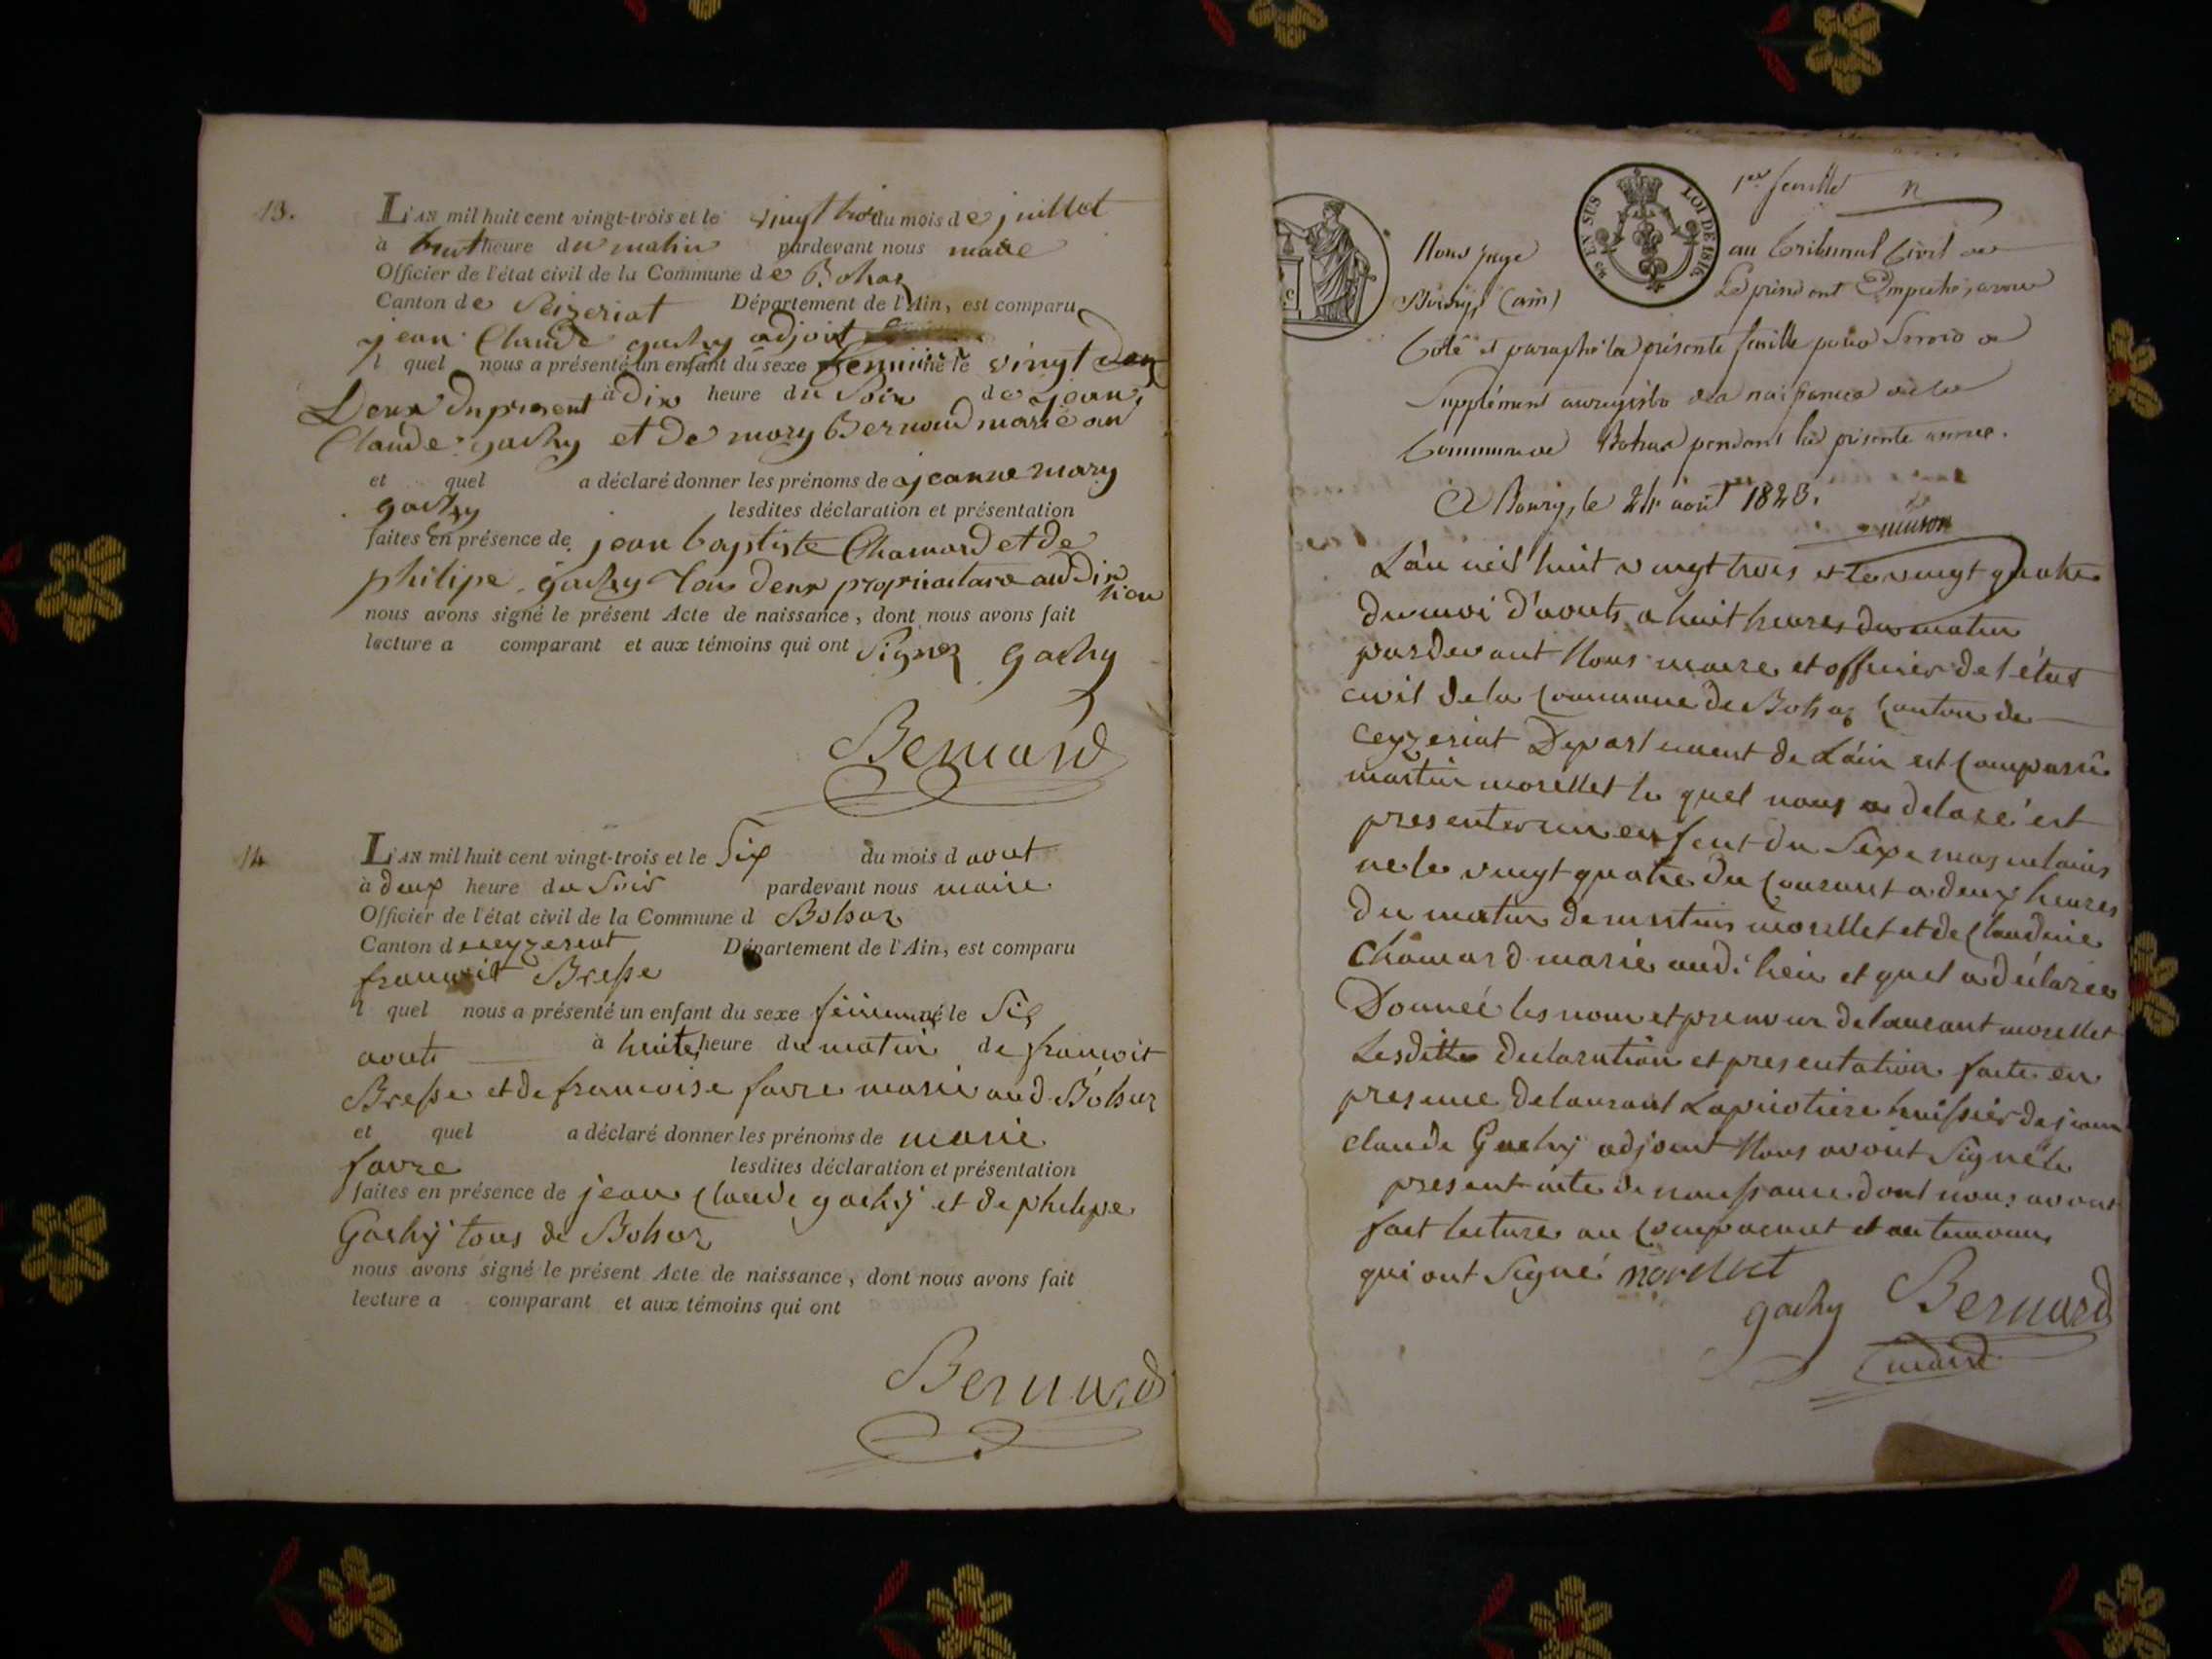 13.
L'AN mil huit cent vingt-trois et le vingt trois du mois de juillet
à huit heure du matin pardevant nous maire
Officier de l'état civil de la Commune de Bohas
Canton de Seizeriat Département de l'Ain, est comparu
jean Claude gachy adjoit
l quel nous a présenté un enfant du sexe feminin né le vingt deux
Deux du present à dix heure du Soir de jean
Claude gachy et de mary Bernard marié au
et quel a déclaré donner les prénoms de jeanne mary
gachy lesdites déclaration et présentation
faites en présence de jean baptiste Chamard et de
philipe gachy tous deux propriaetare au dit lieu
nous avons signé le présent Acte de naissance, dont nous avons fait
lecture a comparant et aux témoins qui ont Signez gachy
Bernard
14
L'AN mil huit cent vingt-trois et le Six du mois d aout
à deux heure du Soir pardevant nous maire
Officier de l'état civil de la Commune d Bohas
Canton d ceyzeriat Département de l'Ain, est comparu
francoit Bresse
l quel nous a présenté un enfant du sexe feminin né le Six
aout à huite heure du matin de francoit
Bresse et de francoise favre marié aud. Bohas
et quel a déclaré donner les prénoms de marie
favre lesdites déclaration et présentation
faites en présence de jean Claude gachÿ et de philipe
Gachÿ tous de Bohas
nous avons signé le présent Acte de naissance, dont nous avons fait
lecture a comparant et aux témoins qui ont
Bernard
1er feuillet
EN SUS LOI DE 1816.
Nous juge au tribunal Civil de
Bourg (ain) Le président Empeché, avons
Coté et paraphé la présente feuille pour Servir de
Supplément au registre de naissance de la
Commune de Bohas pendant la présente année.
A Bourg, le 24 août 1823.
L'an mil huit vingt trois et le vingt quatre
du moi d'aouts a huit heures du matin
pardevant Nous maire et officier de l'état
civil de la Commune de Bohas Canton de
Ceyzeriat Departement de L'ain est Comparu
martin morellet le quel nous a delaré est
presenter un enfent du Sexe masculains
ne le vingt quatre du Courant a deux heures
du matin de martin morellet et de Claudine
Chamard marié audi lieu et quel a déclaree
Donneé les nom et prenom de laurant morellet
Lesditte declaration et presentation faite en
presence de laurant Lapicotiere huissier de jean
claude Gachÿ adjoint Nous avont Signé le
present acte de naissance dont nous avont
fait lecture au Comparant et au temoins
qui ont Signé morellet
gachy Bernard
maire